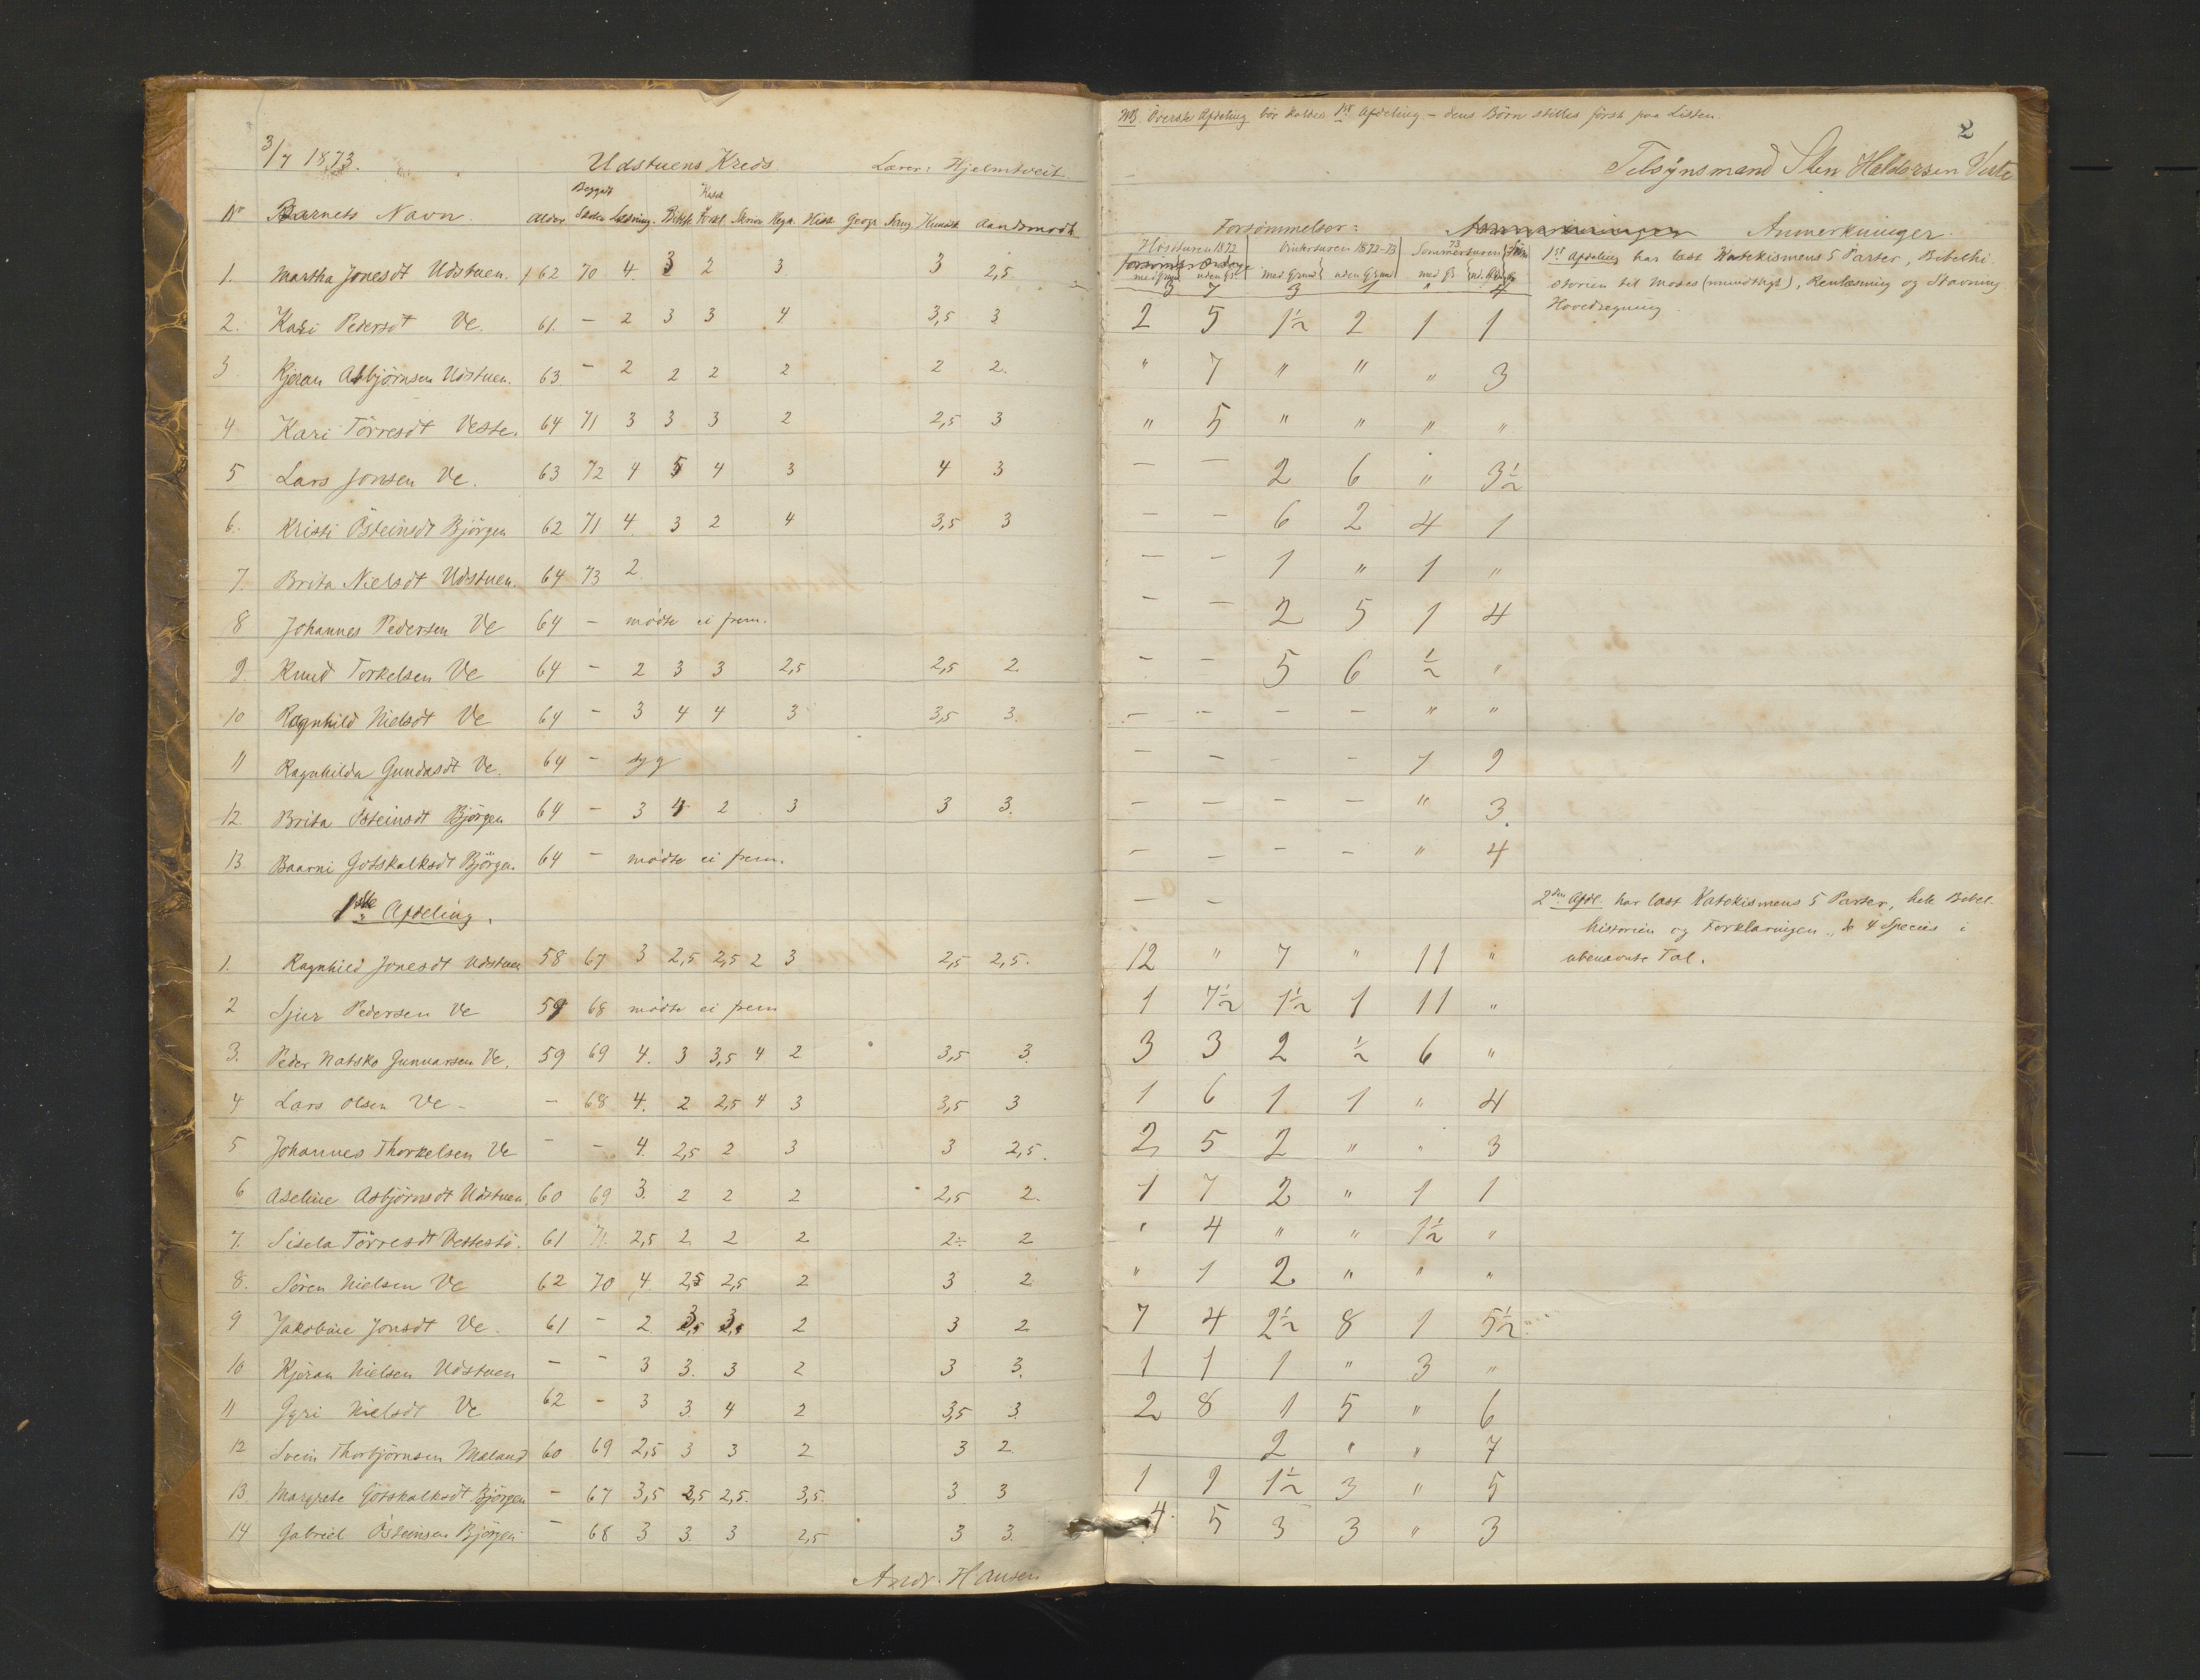 3/7 1873. Udstuens Kreds. Lærer: Hjelmtveit
Nr Barnets Navn. Alder Beggdt Skolen Læsning. Bibelh. Katek & Forkl. Skrivn Regn. Hist. Geogr. Sang Kundsk. Aandsmodh
1. Martha Jonesdt Udstuen. 62 70 4. 3 2 3 3 2,5
2. Kari Pedersdt Ve. 61. – 2 3 3 4 3,5 3
3 Kjøran Asbjørnsen Udstuen. 63. – 2 2 2 2 2 2.
4 Kari Törresdt Veste. 64 71 3 3 3 2 2,5 3
5 Lars Jonsen Ve. 63 72 4 5 4 3 4 3
6. Kristi Östeinsdt Bjørgen 62 71 4. 3 2 4 3,5 3
7. Brita Nielsdt Udstuen. 64 73 2.
8 Johannes Pedersen Ve 64 – mødte ei frem.
9. Knud Torkelsen Ve 64 – 2 3 3 2,5 2,5 2.
10 Ragnhild Nielsdt Ve 64 – 3 4 4 3 3,5 3.
11 Ragnhilda Gundasdt Ve. 64 – syg
12. Brita Östeinsdt Bjørgen 64 – 3 4 2 3 3 3.
13. Baarni Gotskalksdt Bjørgen. 64 – mødte ei frem.
1ste Afdeling.
1. Ragnhild Jonesdt Udstuen 58 67 3 2,5 2,5 2 3 2,5 2,5.
2 Sjur Pedersen Ve 59 68 mødte ei frem
3. Peder Natsko Gunnarsen Ve. 59 69 4. 3 3,5 4 2 3,5 3.
4 Lars Olsen Ve – – 68 4. 2 2,5 4 3 3,5 3
5 Johannes Thorkelsen Ve – – 4. 2,5 2 3 3 2,5.
6 Aseline Asbjørnsdt Udstuen. 60 69 3. 2 2 2 2,5 2.
7. Sisela Törresdt Vestestø. 61 71. 2,5 2 2 2 2÷ 2
8. Søren Nielsen Ve 62 70 4. 2,5 2,5 2 3 2
9 Jakobine Jonsdt Ve. 61 – 2 3 3 2 3 2
10 Kjøran Nielsen Udstuen – – 3 3. 3 2 3 3.
11 Gyri Nielsdt Ve 62 – 3 3 4 2 3,5 3.
12 Svein Thorbjørnsen Mæland 60 69 2,5 3 3 2 3 2.
13 Margrete Gotskalksdt Bjørgen – 67 3,5 2,5 2,5. 3,5. 3 3
14 Gabriel Østeinsen Bjørgen – 68 3 3. 3 2,5 3 3.
Andr. Hansen
NB. Øverste Afdeling bør kaldes 1ste Afdeling – dens Børn stilles først paa Listen.
2
Tilsynsmand Sten Haldorsen Veste
Forsømmelser: Anmerkninger.
Høstturen 1872 Vinterturen 1872–73 Sommerturen 73
med Grund uden Gr. med Grund uden Grund med Gr. ud. Gr
3 7 3 1 " 4
2 5 1½ 2 1 1
" 7 " " " 3
" 5 " " " "
– – 2 6 " 3½
– – 6 2 4 1
– – 1 " 1 "
– – 2 5 1 4
– – 5 6 ½ "
– – – – " "
– – – – 1 9
– – – – " 3.
– – – – " 4
– –
12 " 7 " 11 "
1 7½ 1½ 1 11 "
3 3 2 ½ 6 "
1 6 1 1 " 4
2 5 2 " " 3
1 7 2 " 1 1
" 4 " " 1½ "
" 1 2 " " "
7 4 2½ 8 1 5½
1 1 1 " 3 "
2 8 1 5 " 6
2 " " 7
1 9 1½ 3 " 5
4 5 3 3 " 3
1ste Afdeling har læst Katekismens 5 Parter, Bibelhi-
storien til Moses (mundtligt), Renlæsning og Stavning
Hovedregning
2den Afdl. har læst Katekismens 5 Parter, hele Bibel-
historien og Forklaringen, de 4 Species i
ubenævnte Tal.